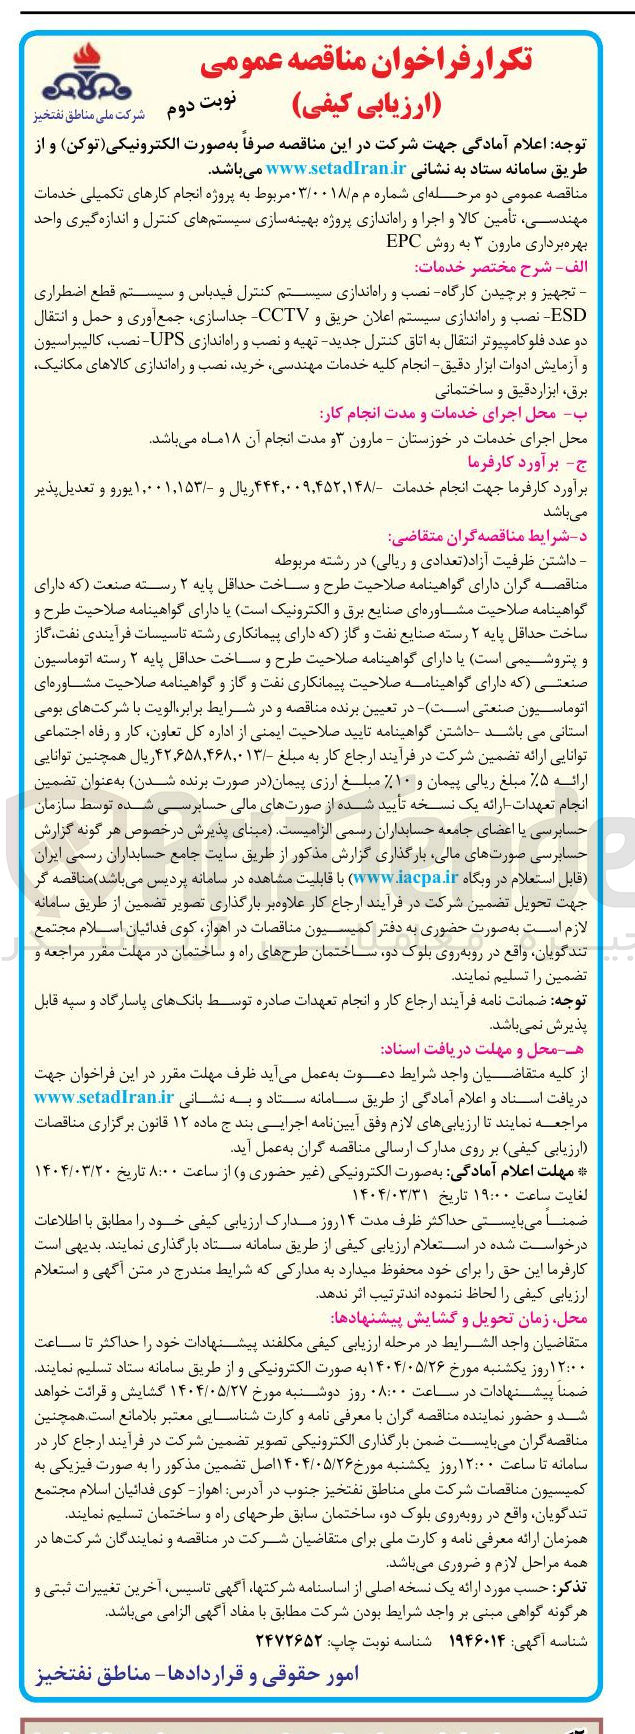 تکرار فراخوان مناقصه عمومی
(ارزیابی کیفی)
نوبت دوم
شرکت ملی مناطق نفتخیز
توجه: اعلام آمادگی جهت شرکت در این مناقصه صرفاً به‌صورت الکترونیکی(توکن) و از
طریق سامانه ستاد به نشانی www.setadIran.ir می‌باشد.
مناقصه عمومی دو مرحله‌ای شماره م م/۰۳/۰۰۱۸مربوط به پروژه انجام کارهای تکمیلی خدمات
مهندسی، تأمین کالا و اجرا و راه‌اندازی پروژه بهینه‌سازی سیستم‌های کنترل و اندازه‌گیری واحد
بهره‌برداری مارون ۳ به روش EPC
الف- شرح مختصر خدمات:
- تجهیز و برچیدن کارگاه- نصب و راه‌اندازی سیستم کنترل فیدباس و سیستم قطع اضطراری
ESD- نصب و راه‌اندازی سیستم اعلان حریق و CCTV- جداسازی، جمع‌آوری و حمل و انتقال
دو عدد فلوکامپیوتر انتقال به اتاق کنترل جدید- تهیه و نصب و راه‌اندازی UPS- نصب، کالیبراسیون
و آزمایش ادوات ابزار دقیق- انجام کلیه خدمات مهندسی، خرید، نصب و راه‌اندازی کالاهای مکانیک،
برق، ابزاردقیق و ساختمانی
ب- محل اجرای خدمات و مدت انجام کار:
محل اجرای خدمات در خوزستان - مارون ۳و مدت انجام آن ۱۸ماه می‌باشد.
ج- برآورد کارفرما
برآورد کارفرما جهت انجام خدمات -/۴۴۴,۰۰۹,۴۵۲,۱۴۸ریال و -/۱,۰۰۱,۱۵۳یورو و تعدیل‌پذیر
می‌باشد
د-شرایط مناقصه‌گران متقاضی:
- داشتن ظرفیت آزاد(تعدادی و ریالی) در رشته مربوطه
مناقصه گران دارای گواهینامه صلاحیت طرح و ساخت حداقل پایه ۲ رسته صنعت (که دارای
گواهینامه صلاحیت مشاوره‌ای صنایع برق و الکترونیک است) یا دارای گواهینامه صلاحیت طرح و
ساخت حداقل پایه ۲ رسته صنایع نفت و گاز (که دارای پیمانکاری رشته تاسیسات فرآیندی نفت،گاز
و پتروشیمی است) یا دارای گواهینامه صلاحیت طرح و ساخت حداقل پایه ۲ رسته اتوماسیون
صنعتی (که دارای گواهینامه صلاحیت پیمانکاری نفت و گاز و گواهینامه صلاحیت مشاوره‌ای
اتوماسیون صنعتی است)- در تعیین برنده مناقصه و در شرایط برابر،الویت با شرکت‌های بومی
استانی می باشد -داشتن گواهینامه تایید صلاحیت ایمنی از اداره کل تعاون، کار و رفاه اجتماعی
توانایی ارائه تضمین شرکت در فرآیند ارجاع کار به مبلغ -/۴۲,۶۵۸,۴۶۸,۰۱۳ریال همچنین توانایی
ارائه ۵٪ مبلغ ریالی پیمان و ۱۰٪ مبلغ ارزی پیمان(در صورت برنده شدن) به‌عنوان تضمین
انجام تعهدات-ارائه یک نسخه تأیید شده از صورت‌های مالی حسابرسی شده توسط سازمان
حسابرسی یا اعضای جامعه حسابداران رسمی الزامیست. (مبنای پذیرش درخصوص هر گونه گزارش
حسابرسی صورت‌های مالی، بارگذاری گزارش مذکور از طریق سایت جامع حسابداران رسمی ایران
(قابل استعلام در وبگاه www.iacpa.ir) با قابلیت مشاهده در سامانه پردیس می‌باشد)مناقصه گر
جهت تحویل تضمین شرکت در فرآیند ارجاع کار علاوه‌بر بارگذاری تصویر تضمین از طریق سامانه
لازم است به‌صورت حضوری به دفتر کمیسیون مناقصات در اهواز، کوی فدائیان اسلام مجتمع
تندگویان، واقع در روبه‌روی بلوک دو، ساختمان طرح‌های راه و ساختمان در مهلت مقرر مراجعه و
تضمین را تسلیم نمایند.
توجه: ضمانت نامه فرآیند ارجاع کار و انجام تعهدات صادره توسط بانک‌های پاسارگاد و سپه قابل
پذیرش نمی‌باشد.
هـ-محل و مهلت دریافت اسناد:
از کلیه متقاضیان واجد شرایط دعوت به‌عمل می‌آید ظرف مهلت مقرر در این فراخوان جهت
دریافت اسناد و اعلام آمادگی از طریق سامانه ستاد و به نشانی www.setadIran.ir
مراجعه نمایند تا ارزیابی‌های لازم وفق آیین‌نامه اجرایی بند ج ماده ۱۲ قانون برگزاری مناقصات
(ارزیابی کیفی) بر روی مدارک ارسالی مناقصه گران به‌عمل آید.
* مهلت اعلام آمادگی: به‌صورت الکترونیکی (غیر حضوری و) از ساعت ۸:۰۰ تاریخ ۱۴۰۴/۰۳/۲۰
لغایت ساعت ۱۹:۰۰ تاریخ ۱۴۰۴/۰۳/۳۱
ضمناً می‌بایستی حداکثر ظرف مدت ۱۴روز مدارک ارزیابی کیفی خود را مطابق با اطلاعات
درخواست شده در استعلام ارزیابی کیفی از طریق سامانه ستاد بارگذاری نمایند. بدیهی است
کارفرما این حق را برای خود محفوظ میدارد به مدارکی که شرایط مندرج در متن آگهی و استعلام
ارزیابی کیفی را لحاظ ننموده اندترتیب اثر ندهد.
محل، زمان تحویل و گشایش پیشنهادها:
متقاضیان واجد الشرایط در مرحله ارزیابی کیفی مکلفند پیشنهادات خود را حداکثر تا ساعت
۱۲:۰۰روز یکشنبه مورخ ۱۴۰۴/۰۵/۲۶به صورت الکترونیکی و از طریق سامانه ستاد تسلیم نمایند.
ضمناً پیشنهادات در ساعت ۰۸:۰۰ روز دوشنبه مورخ ۱۴۰۴/۰۵/۲۷ گشایش و قرائت خواهد
شد و حضور نماینده مناقصه گران با معرفی نامه و کارت شناسایی معتبر بلامانع است.همچنین
مناقصه‌گران می‌بایست ضمن بارگذاری الکترونیکی تصویر تضمین شرکت در فرآیند ارجاع کار در
سامانه تا ساعت ۱۲:۰۰روز یکشنبه مورخ۱۴۰۴/۰۵/۲۶اصل تضمین مذکور را به صورت فیزیکی به
کمیسیون مناقصات شرکت ملی مناطق نفتخیز جنوب در آدرس: اهواز- کوی فدائیان اسلام مجتمع
تندگویان، واقع در روبه‌روی بلوک دو، ساختمان سابق طرحهای راه و ساختمان تسلیم نمایند.
همزمان ارائه معرفی نامه و کارت ملی برای متقاضیان شرکت در مناقصه و نمایندگان شرکت‌ها در
همه مراحل لازم و ضروری می‌باشد.
تذکر: حسب مورد ارائه یک نسخه اصلی از اساسنامه شرکتها، آگهی تاسیس، آخرین تغییرات ثبتی و
هرگونه گواهی مبنی بر واجد شرایط بودن شرکت مطابق با مفاد آگهی الزامی می‌باشد.
شناسه آگهی: ۱۹۴۶۰۱۴ شناسه نوبت چاپ: ۲۴۷۲۶۵۲
امور حقوقی و قراردادها- مناطق نفتخیز